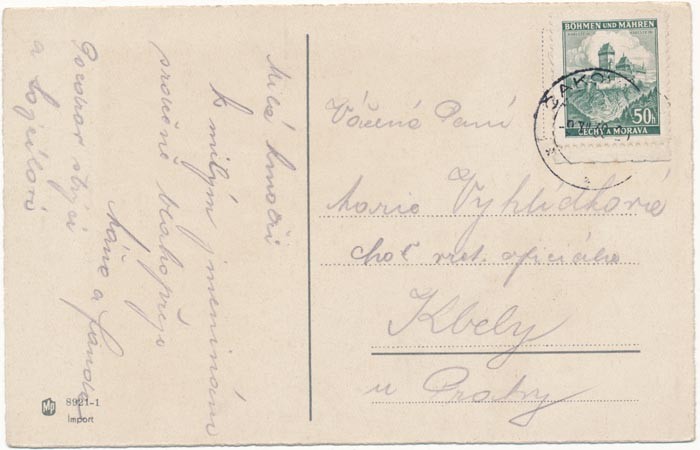 Milá kmotři
K milým jmeninám
srdečně blahopřeje
Máňa a Landa
Pozdrav strýci
a Bojíkovi
8921-1
Import
BÖHMEN UND MÄHREN
50h
ČECHY A MORAVA
ŽAKO
Vážená Paní
Marie Vyhlídková
choť vrt. oficiála
Kbely
u Prahy